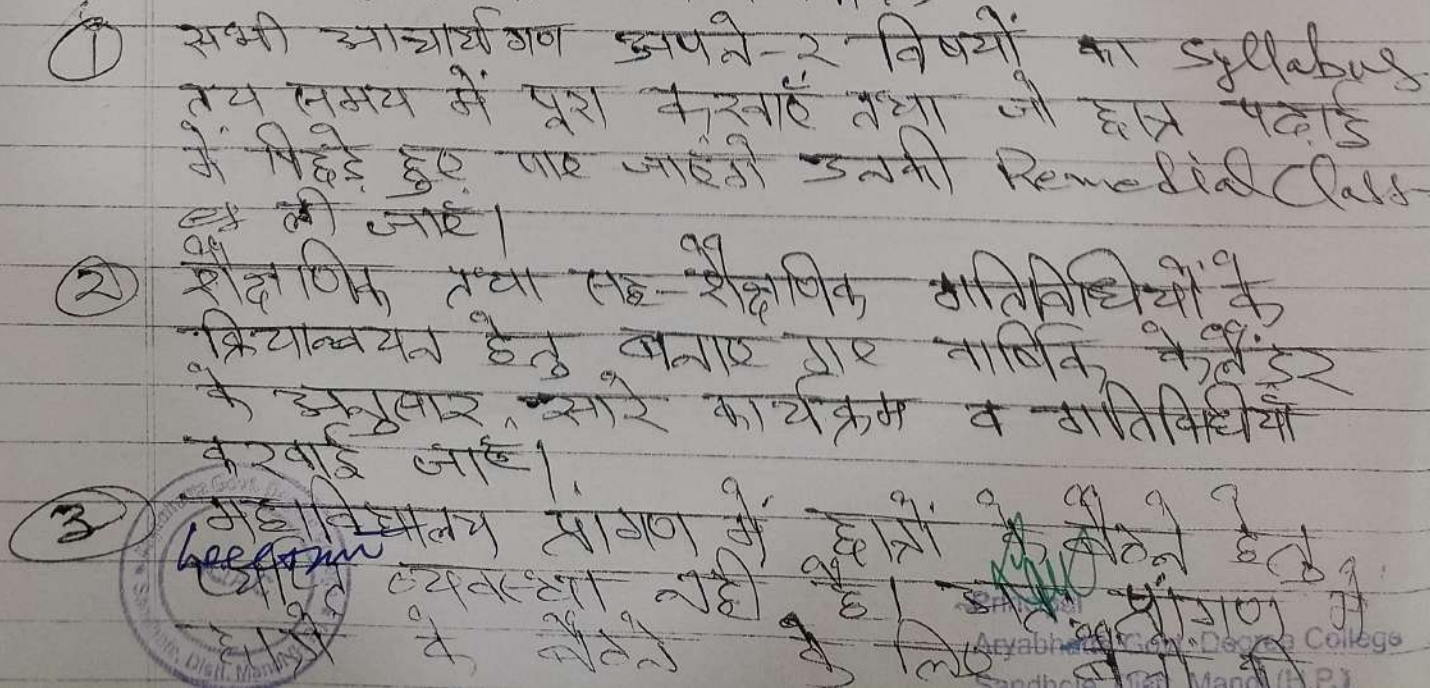 ① सभी आचार्यगण अपने-२ विषयों का Syllabus
तय समय में पूरा करवाएँ तथा जो छात्र पढाई
में पिछड़े हुए पाए जाएंगे उनकी Remedial Class-
es ली जाएँ।
② शैक्षणिक तथा सह-शैक्षणिक गतिविधियों के
क्रियान्वयन हेतु बनाए गए वार्षिक कैलैंडर
के अनुसार सारे कार्यक्रम व गतिविधीयाँ
करवाई जाएँ।
③ महाविद्यालय प्रांगण में छात्रों के बैठने हेतु
व्यवस्था नहीं है। प्रांगण में
छात्रों के बैठने के लिए
Principal
Aryabhatta Govt. Degree College
Sandhole Distt. Mandi (H.P.)